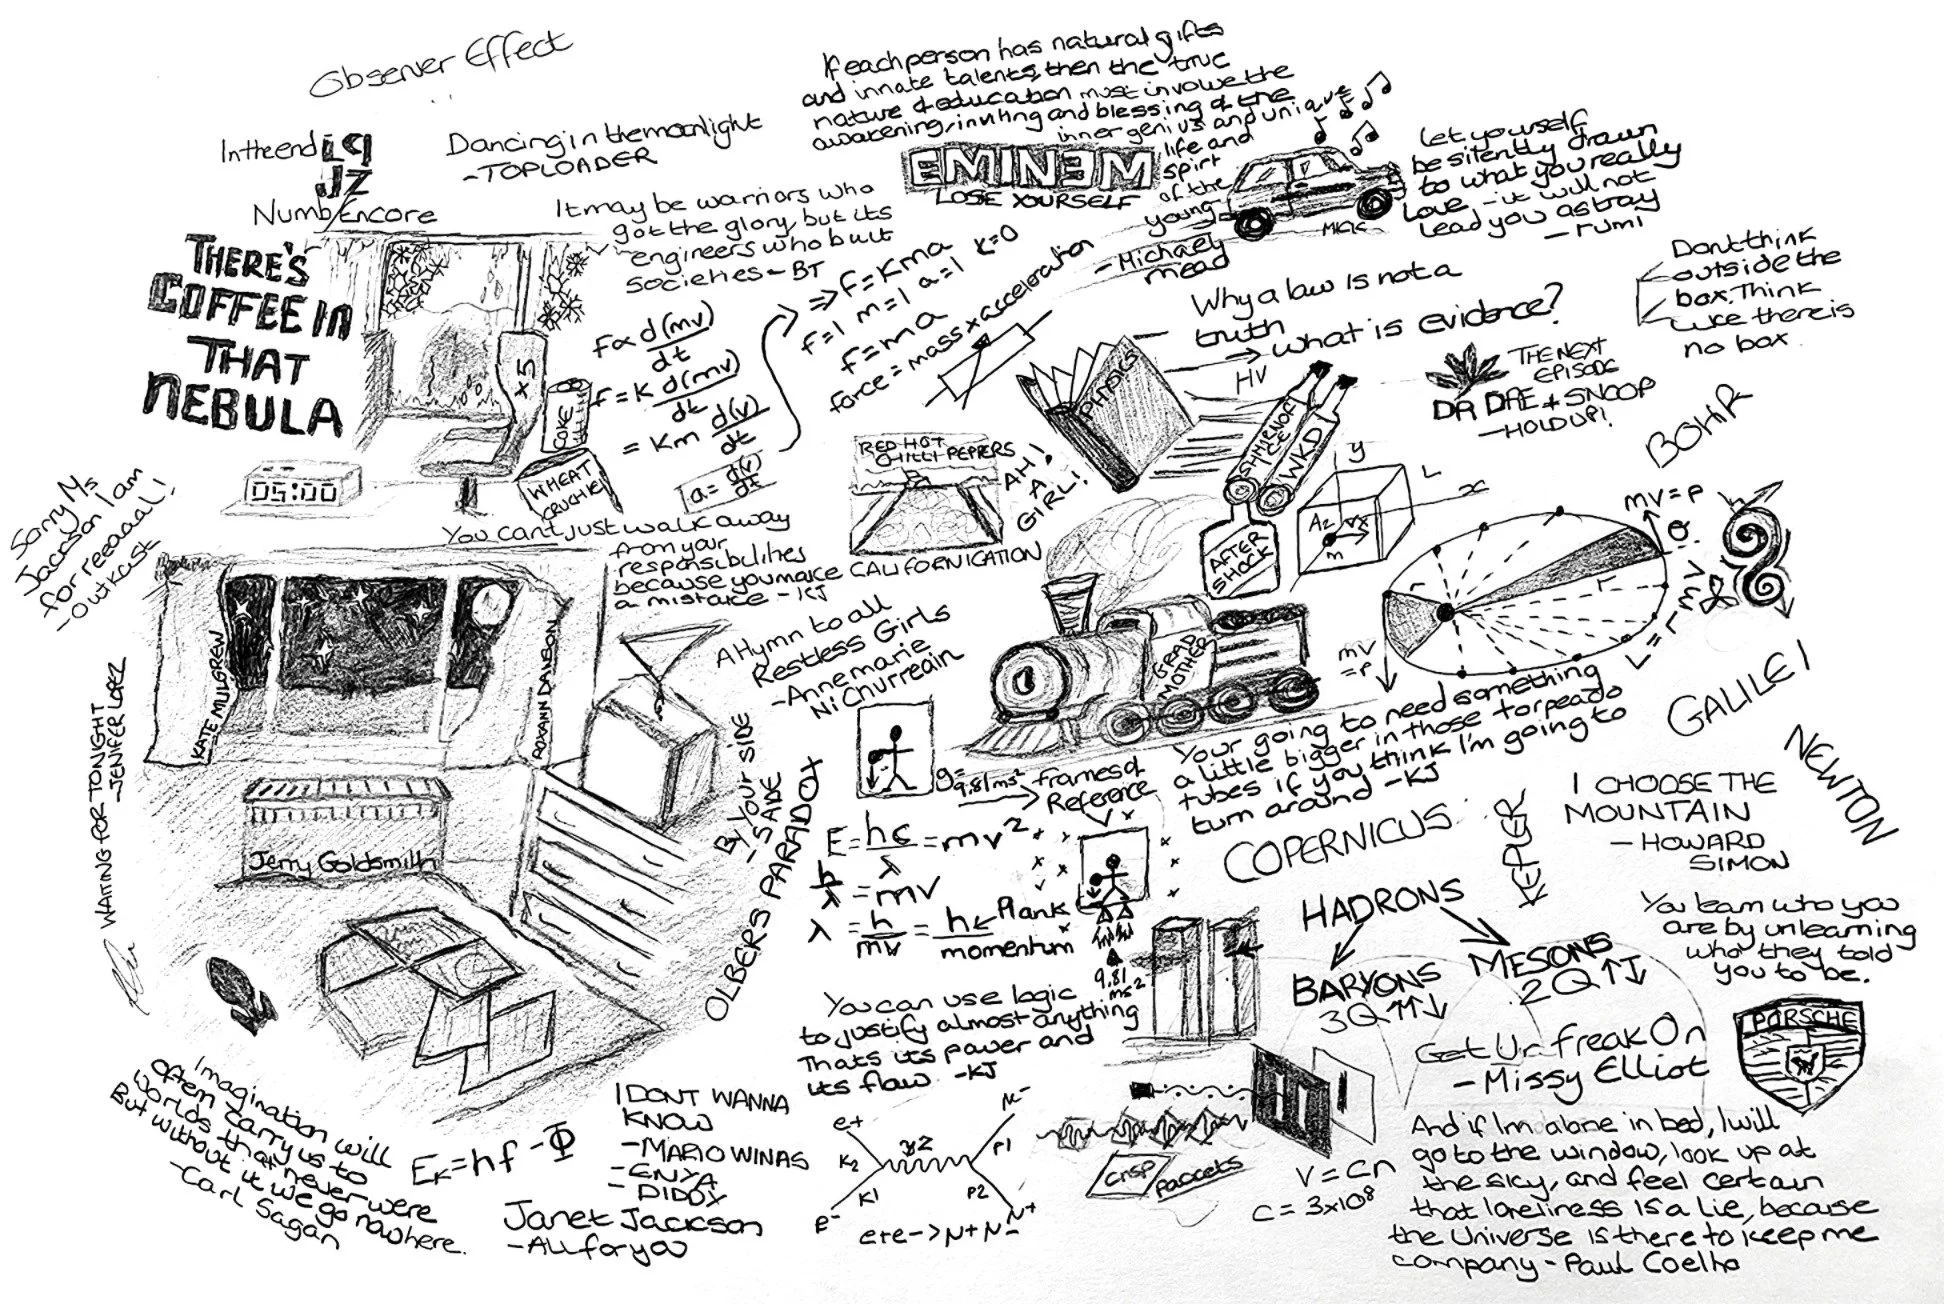 Observer Effect
In the end LP
JZ
Numb/Encore
Dancing in the moonlight
-TOPLOADER
If each person has natural gifts
and innate talents, then the true
nature of education must involve the
awakening, inviting and blessing of the
inner genius and unique
life and
spirit
of the
young
- Michael
mead
EMINEM
LOSE YOURSELF
MICK
Let yourself
be silently drawn
to what you really
love - it will not
lead you astray
- rumi
It may be warriors who
got the glory, but its
engineers who built
societies - BT
THERE'S
COFFEE IN
THAT
NEBULA
×5
COKE
WHEAT
CRUNCHIE
05:00
f∝ d(mv)
dt
f=K d(mv)
dt
= Km d(v)
dt
a= d(v)
dt
⇒ f=Kma
f=1 m=1 a=1 k=0
f=ma
force = mass x acceleration
PHYSICS
Why a law is not a
truth
HV
What is evidence?
Dont think
outside the
box. Think
like there is
no box.
THE NEXT
EPISODE
DR DRE + SNOOP
-HOLD UP!
SMIRNOFF
ICE
WKD
AFTER
SHOCK
RED HOT
CHILLI PEPPERS
CALIFORNICATION
AH!
A
GIRL!
y
L
x
Az
Vx
m
BOHR
mv=p
r
L=rmv
mv
=p
Sorry Ms
Jackson I am
for reeaaal!
-Outkast
You cant just walk away
from your
responsibilities
because you make
a mistake - KJ
A Hymn to all
Restless Girls
-Annemarie
Ni Churreain
KATE MULGREW
ROXANN DAWSON
WAITING FOR TONIGHT
-JENIFER LOPEZ
Jerry Goldsmith
By Your SIDE
- SADE
OLBERS PARADOX
GRAD
MOTHER
Your going to need something
a little bigger in those torpeado
tubes if you think I'm going to
turn around - KJ
GALILEI
NEWTON
COPERNICUS
KEPLER
I CHOOSE THE
MOUNTAIN
- HOWARD
SIMON
g=
9.81ms²
frames of
Reference
E = hc = mv²
λ
h = mv
λ
λ = h = h ← Plank
mv momentum
9.81
ms²
HADRONS
BARYONS
3Q↑↑↓
MESONS
2Q↑↓
You learn who you
are by unlearning
who they told
you to be.
PORSCHE
You can use logic
to justify almost anything
Thats its power and
its flaw. -KJ
Get Ur Freak On
- Missy Elliot
Imagination will
often carry us to
worlds that never were
But without it we go nowhere.
-Carl Sagan
Eκ=hf-Φ
I DONT WANNA
KNOW
- MARIO WINAS
- ENYA
- DIDDY
Janet Jackson
- All for you
e+
K2
K1
e-
γZ
μ-
P1
P2
μ+
e+e-->μ+μ-
crisp
packets
V=Cn
C=3x10⁸
And if Im alone in bed, I will
go to the window, look up at
the sky, and feel certain
that loneliness is a lie, because
the Universe is there to keep me
company - Paul Coelho